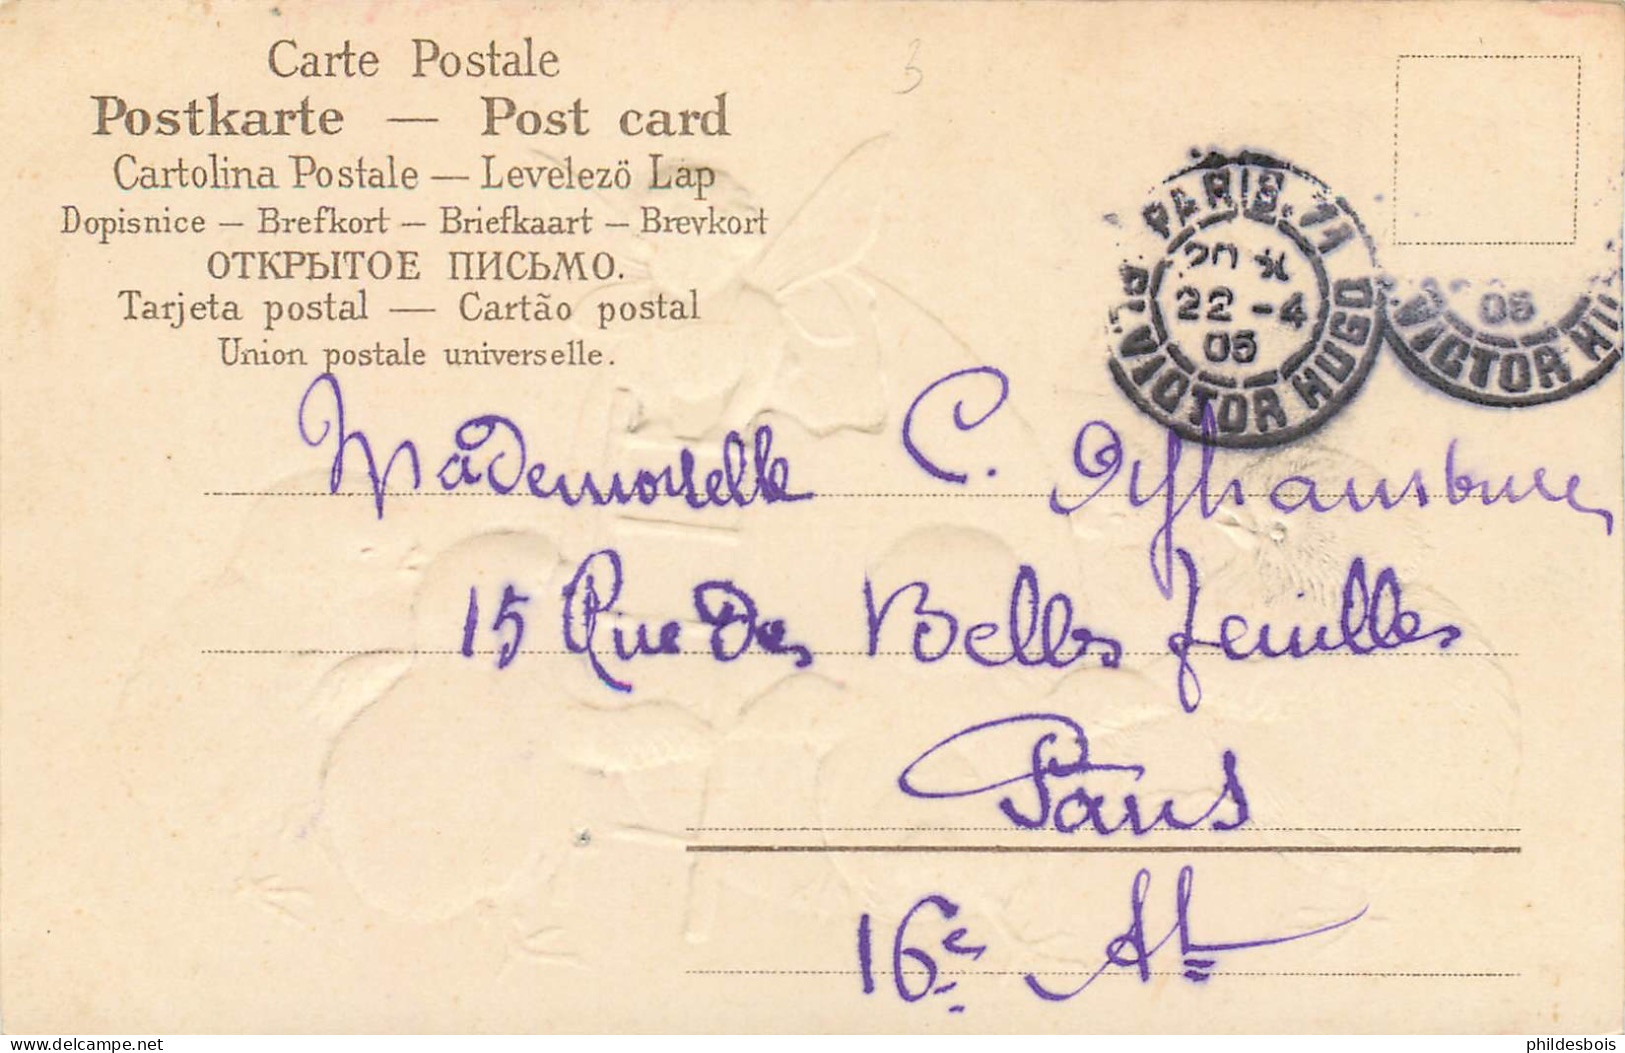 Carte Postale
Postkarte — Post card
Cartolina Postale — Levelezö Lap
Dopisnice — Brefkort — Briefkaart — Brevkort
ОТКРЫТОЕ ПИСЬМО.
Tarjeta postal — Cartão postal
Union postale universelle.
3
PARIS. 71
22 - 4
05
PL. VICTOR HUGO
05
VICTOR HU
Mademoiselle C.
15 Rue des Belles feuilles
Paris
16e At
phildesbois
delcampe.net